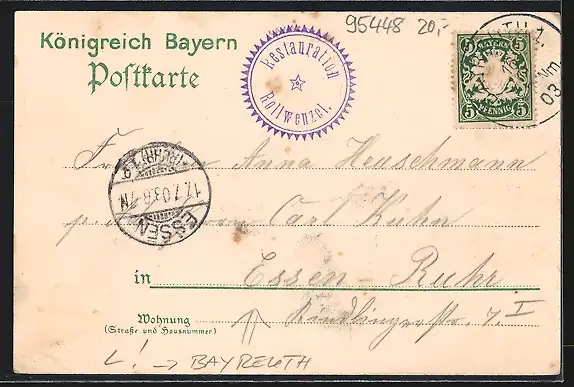 95448 20,-
Königreich Bayern
Postkarte
Restauration
Rollwenzel.
BAYERN
5 5
5 PFENNIG 5
Nm.
03
Anna Heuschmann
Carl Kuhn
ESSEN
17.7.03.6-7N.
in Essen-Ruhr
Wohnung
(Straße und Hausnummer)
L! → BAYREUTH